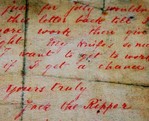 just for jolly wouldn
this letter back till I
more work then give
ght My knife's
I want to get to work
if I get a chance
Yours truly
Jack the Ripper